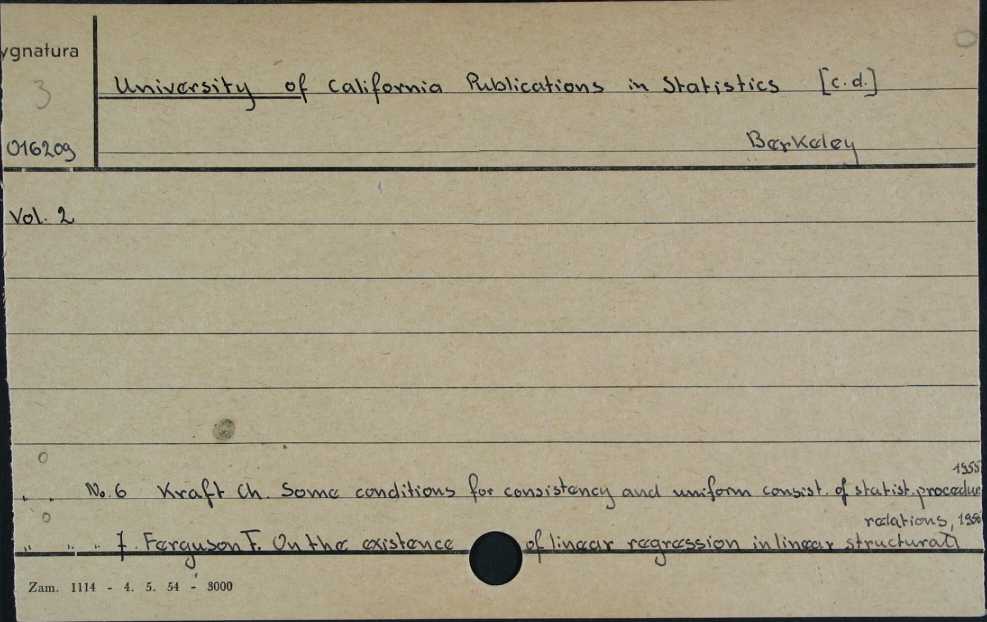 ygnatura
3
University of California Publications in Statistics [c.d.]
016209 Berkeley
Vol. 2
1955
No. 6 Kraft Ch. Some conditions for consistency and uniform consist. of statist. procedue
relations, 1955
" " " 7. Ferguson T. On the existence of linear regression in linear structural
Zam. 1114 - 4. 5. 54 - 3000